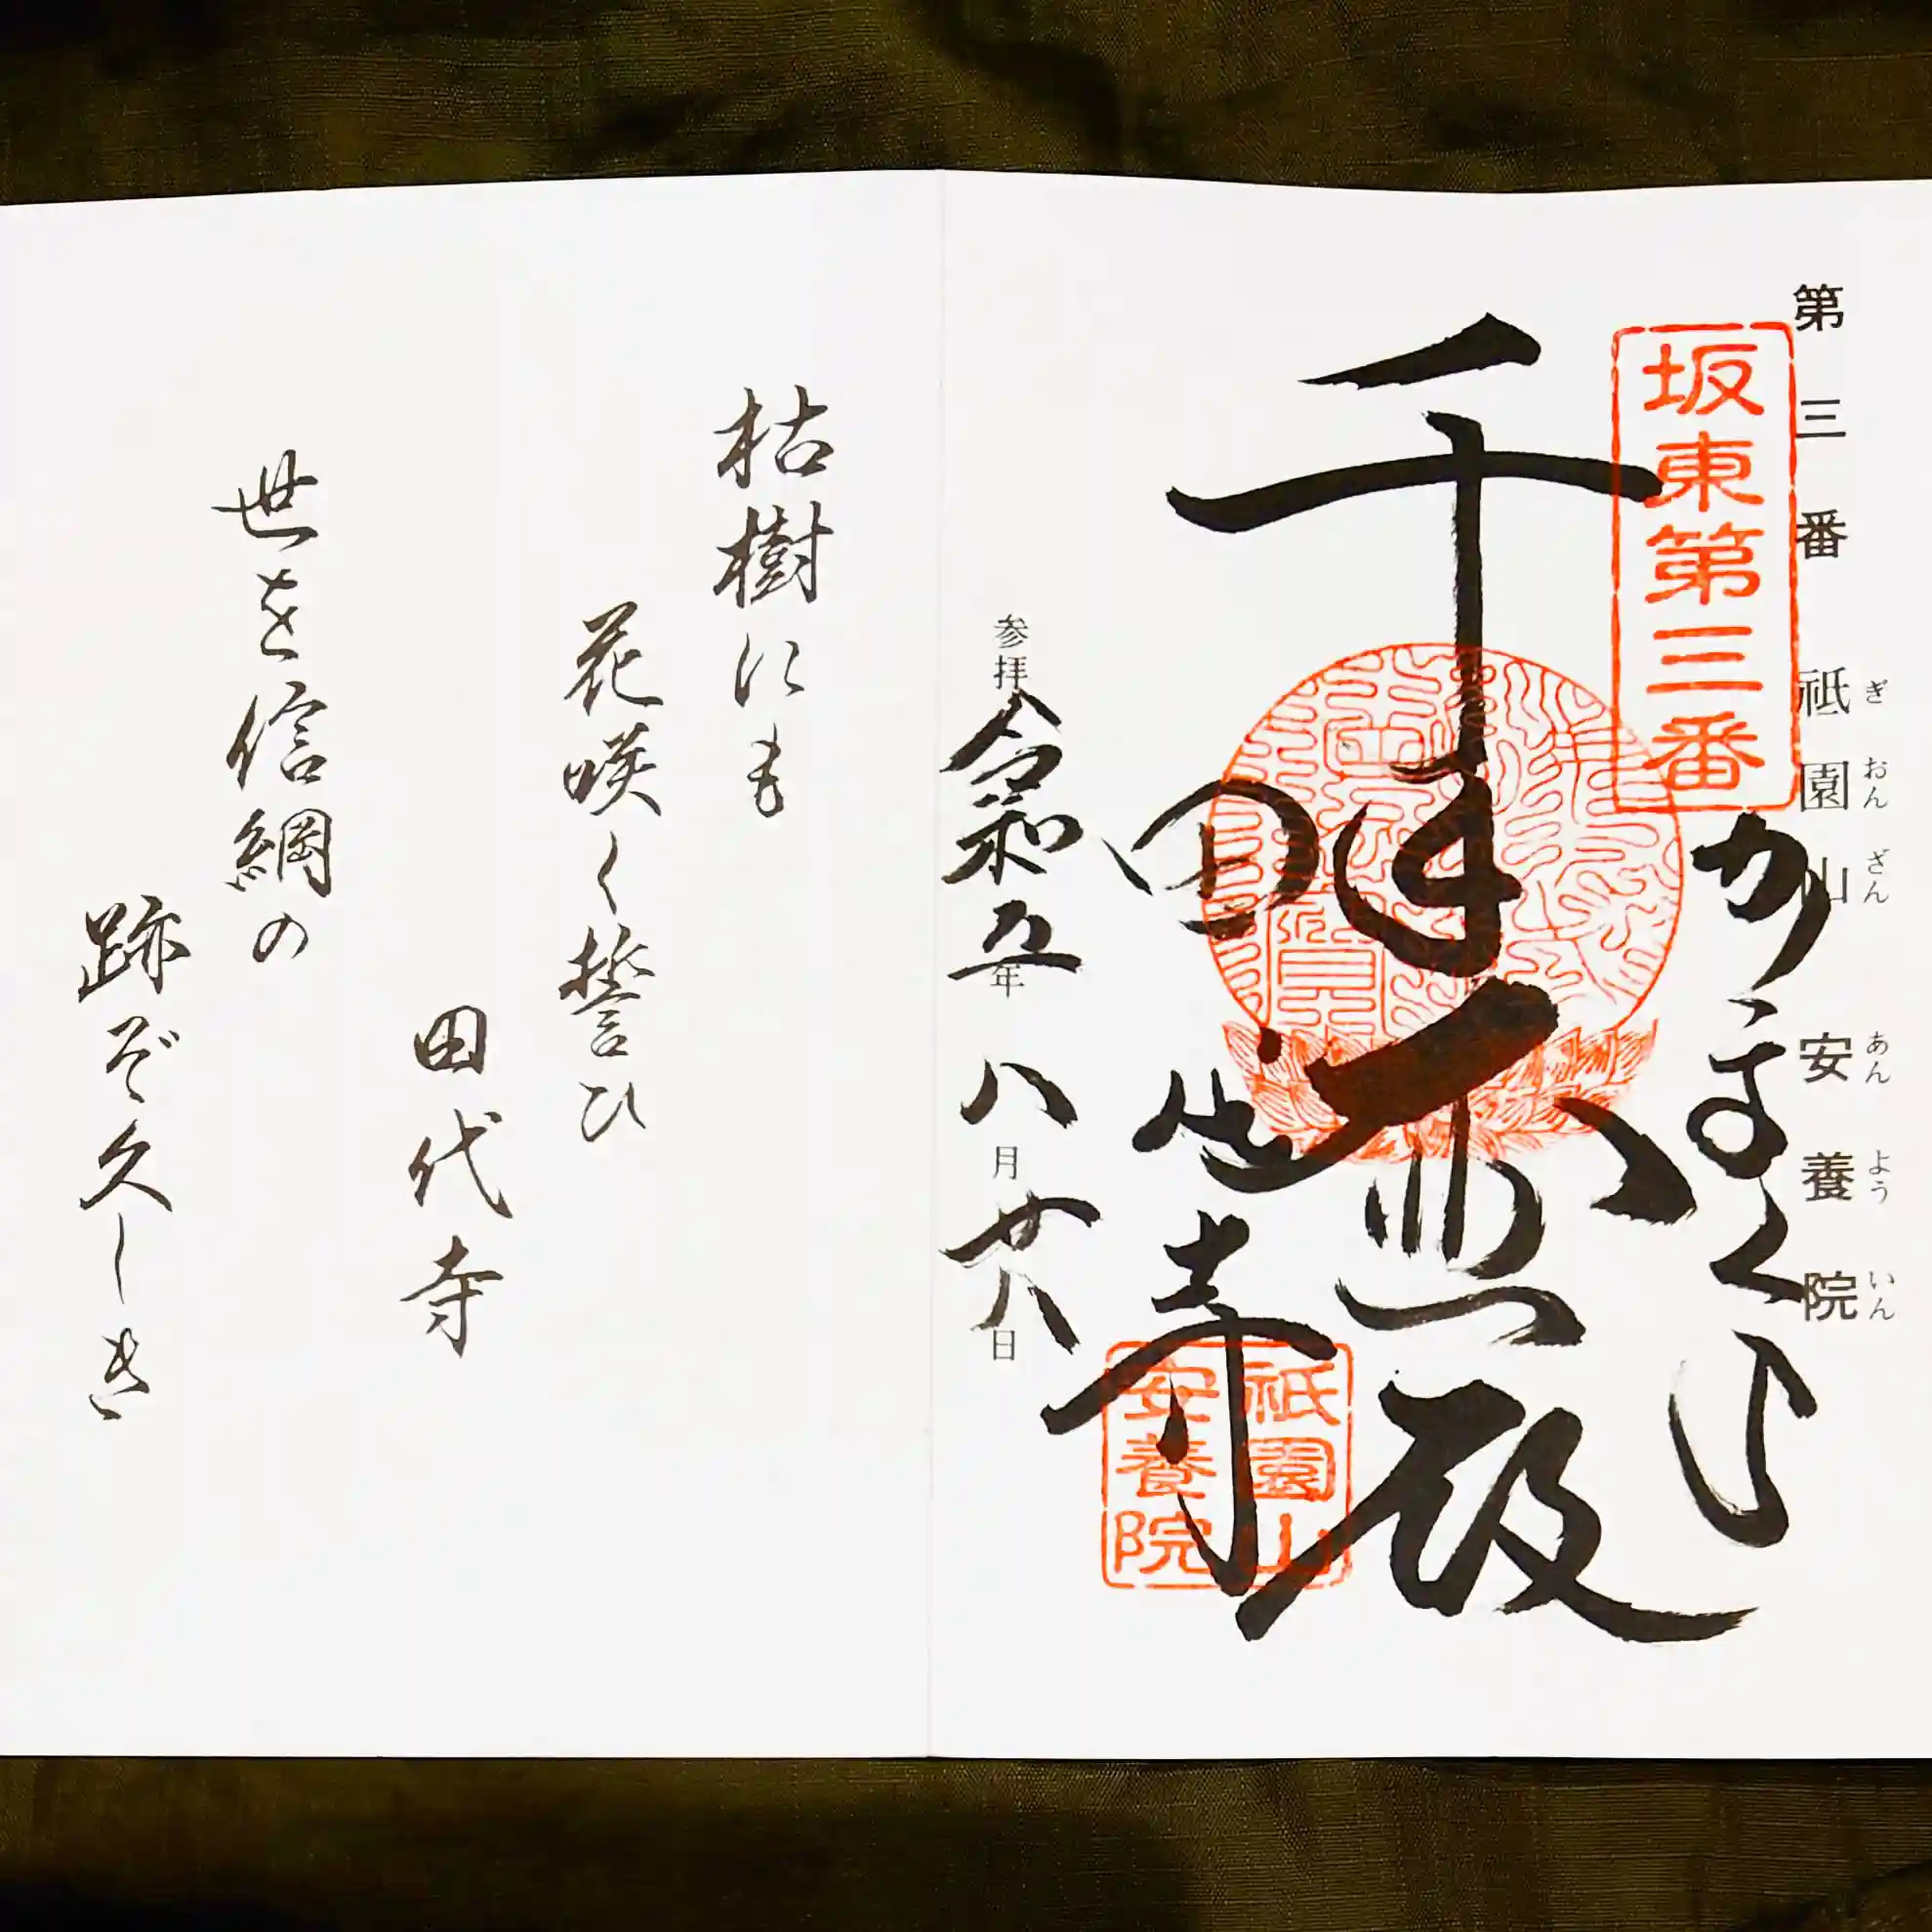 第三番 祇園山 安養院
ぎおんざん あんよういん
坂東第三番
かまくら
千手大悲殿
田代寺
祇園山
安養院
参拝 令和五年 八月 廿八日
枯樹にも
花咲く誓ひ
田代寺
世を信綱の
跡ぞ久しき